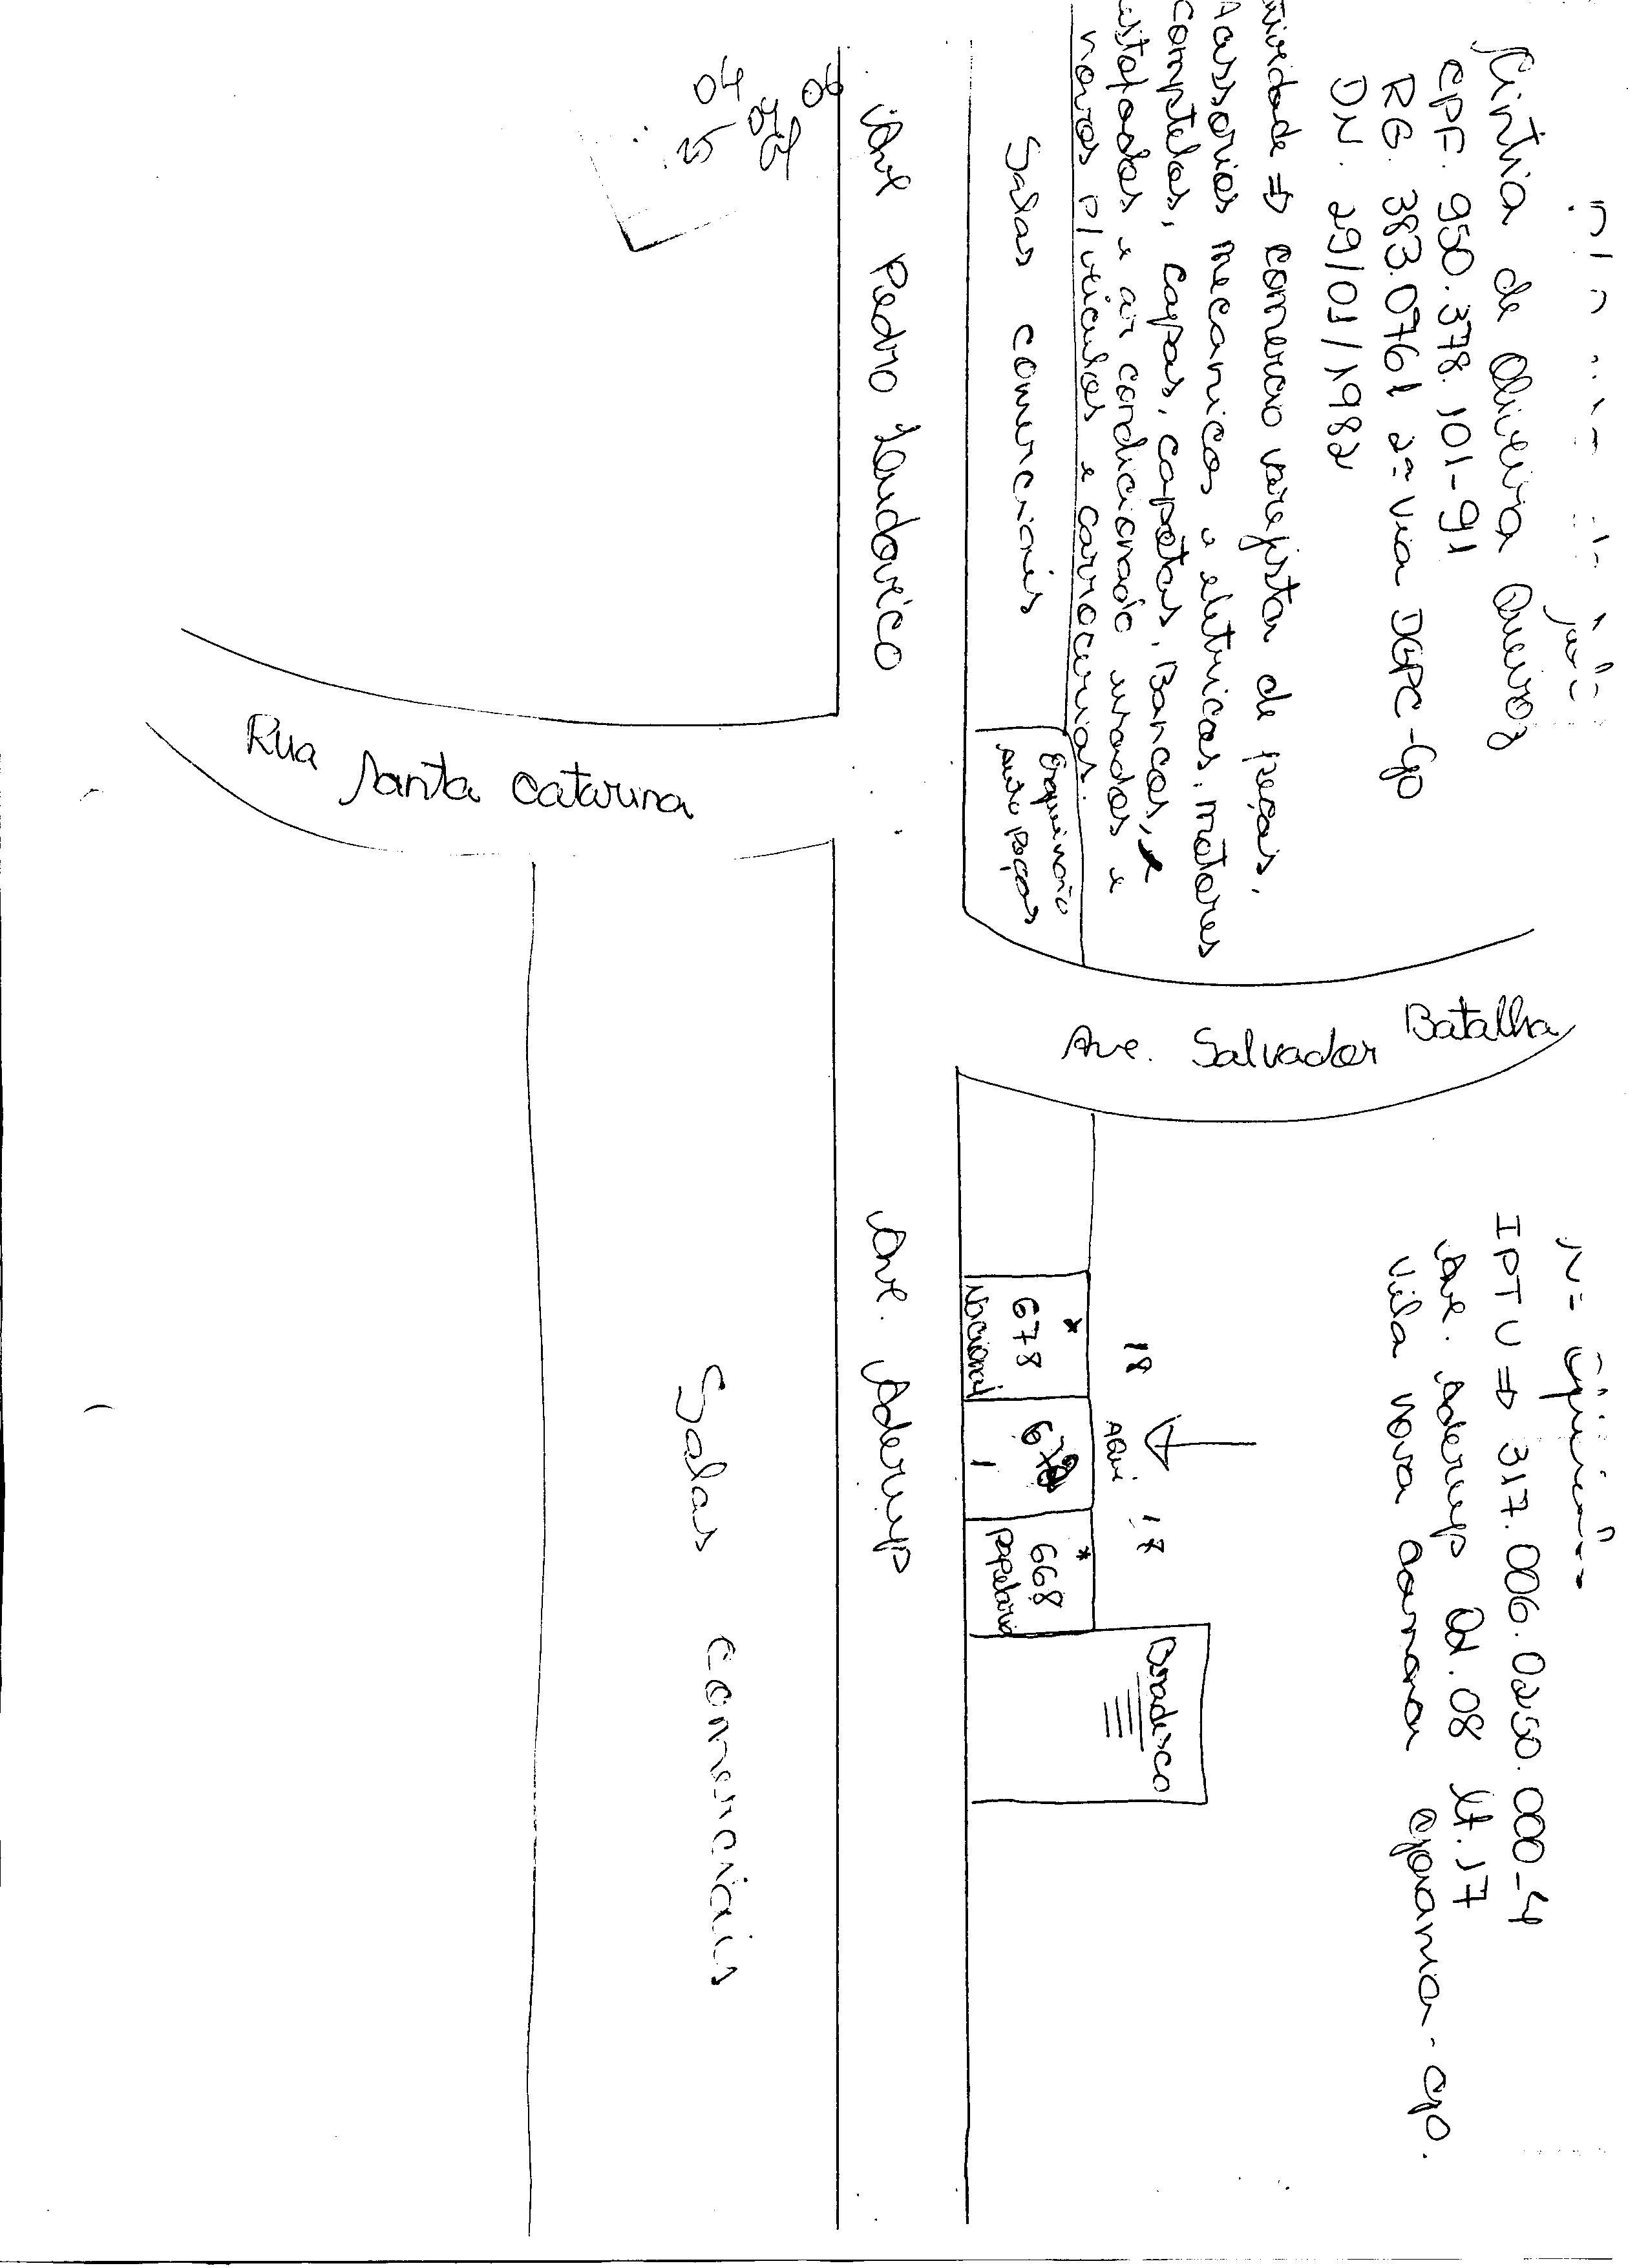 Cintia de Oliveira Queiroz
CPF. 950.378.101-91
RG. 383.0761 2ª via DGPC-Go
DN. 29/01/1982
atividade ⇒ comercio varejista de peças,
Acessorios mecanicos e eletricos, motores
completos, capas, capotas, Bancos,
estofados e ar condicionado usados e
novos p/ veiculos e carrocerias.
IPTU ⇒ 317.006.0250.000-4
Ave. Aderup Qd. 08 lt. 17
Vila Nova Canaa Goiania-Go.
Salas comerciais
Esquinão
auto peças
Ave. Salvador Batalha
18
AQUI
17
678
Nacional
*
1
668
papelaria
*
Bradesco
Ave Pedro Ludovico
Ave. Aderup
Rua Santa Catarina
Salas comerciais
04